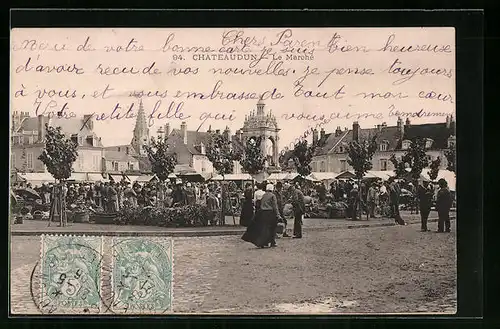 Chers Paren
Merci de votre bonne carte, suis bien heureuse
94. CHATEAUDUN - Le Marché
d'avoir reçu de vos nouvelles, je pense toujours
à vous, et vous embrasse de tout mon cœur
Votre petite fille qui vous aime
POSTES